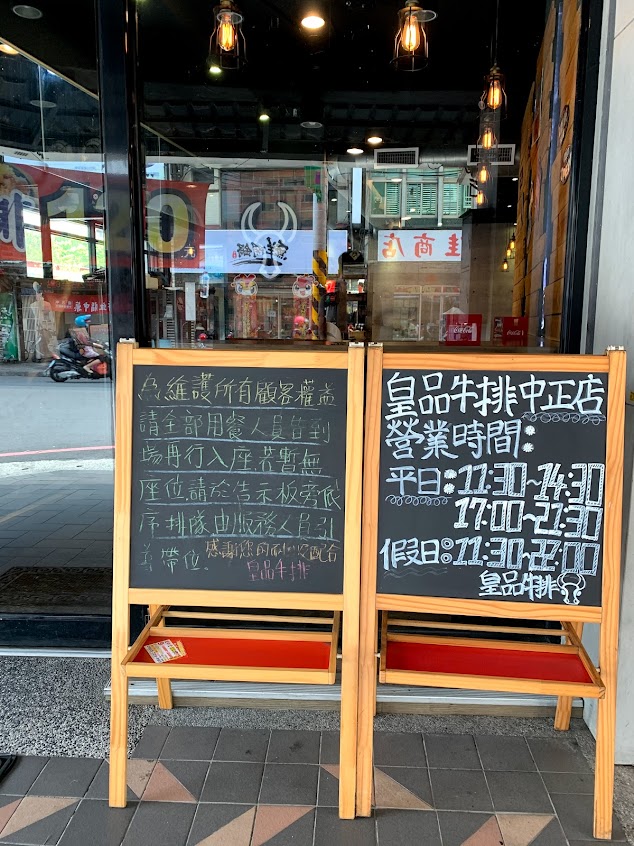 為維護所有顧客權益
請全部用餐人員皆到
場再行入座.若暫無
座位請於告示板旁依
序排隊由服務人員引
導帶位.
感謝您的耐心與配合
皇品牛排
皇品牛排中正店
營業時間:
平日:11:30~14:30
17:00~21:30
假日:11:30~22:00
皇品牛排
120
佳商店
Coca-Cola